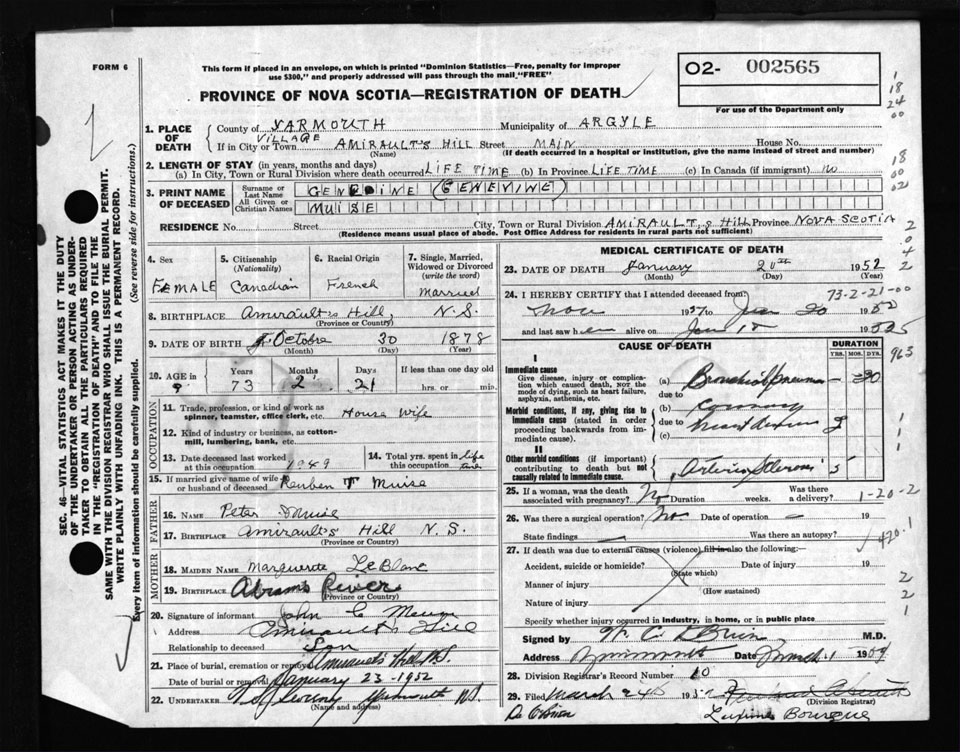 FORM 6
This form if placed in an envelope, on which is printed "Dominion Statistics—Free, penalty for improper
use $300," and properly addressed will pass through the mail "FREE"
PROVINCE OF NOVA SCOTIA—REGISTRATION OF DEATH
O2- 002565
For use of the Department only
1. PLACE OF DEATH
County of YARMOUTH Municipality of ARGYLE
VILLAGE
If in City or Town AMIRAULT'S HILL Street MAIN House No.
(Name) (If death occurred in a hospital or institution, give the name instead of street and number)
2. LENGTH OF STAY (in years, months and days)
(a) In City, Town or Rural Division where death occurred LIFE TIME (b) In Province LIFE TIME (c) In Canada (if immigrant) no
3. PRINT NAME OF DECEASED
Surname or Last Name (GENEVINE)
All Given or Christian Names MUISE
RESIDENCE No. Street City, Town or Rural Division AMIRAULT,s HILL Province NOVA SCOTIA
(Residence means usual place of abode. Post Office Address for residents in rural parts not sufficient)
4. Sex
FEMALE
5. Citizenship
(Nationality)
Canadian
6. Racial Origin
French
7. Single, Married, Widowed or Divorced
(write the word)
Married
8. BIRTHPLACE Amirault's Hill, N.S.
(Province or Country)
9. DATE OF BIRTH 30 1878
(Month) (Day) (Year)
10. AGE in
Years Months Days If less than one day old
73 2 21 hrs. or min.
OCCUPATION
11. Trade, profession, or kind of work as spinner, teamster, office clerk, etc. House Wife
12. Kind of industry or business, as cotton-mill, lumbering, bank, etc.
13. Date deceased last worked at this occupation 1949
14. Total yrs. spent in this occupation life time
15. If married give name of wife or husband of deceased Reuben T Muise
FATHER
16. NAME Peter Muise
17. BIRTHPLACE Amirault's Hill N.S.
(Province or Country)
MOTHER
18. MAIDEN NAME Marguerite LeBlanc
19. BIRTHPLACE Abrams River
(Province or Country)
20. Signature of informant John C
Address Amirault's Hill
Relationship to deceased Son
21. Place of burial, cremation or removal Amirault's Hill N.S.
Date of burial or removal January 23-1952
22. UNDERTAKER Yarmouth NS.
(Name and address)
MEDICAL CERTIFICATE OF DEATH
23. DATE OF DEATH January 20th 1952
(Month) (Day) (Year)
73-2-21-00
24. I HEREBY CERTIFY that I attended deceased from:
Nov 1937 to Jan 20 1952
and last saw her alive on Jan 1952
CAUSE OF DEATH
DURATION
YRS. MOS. DYS.
I
Immediate cause
Give disease, injury or complication which caused death, not the mode of dying, such as heart failure, asphyxia, asthenia, etc.
(a)
due to
Morbid conditions, if any, giving rise to immediate cause (stated in order proceeding backwards from immediate cause).
(b)
due to
(c)
II
Other morbid conditions (if important) contributing to death but not causally related to immediate cause. 5
25. If a woman, was the death associated with pregnancy? No Duration weeks. Was there a delivery? 1-20-2
26. Was there a surgical operation? No. Date of operation 19
State findings Was there an autopsy?
27. If death was due to external causes (violence) fill in also the following:
Accident, suicide or homicide? Date of injury 19
(State which)
Manner of injury
(How sustained)
Nature of injury
Specify whether injury occurred in industry, in home, or in public place
Signed by M.D.
Address Date March 1
28. Division Registrar's Record Number 10
29. Filed March 24th
(Division Registrar)
Bourque
SEC. 46 VITAL STATISTICS ACT MAKES IT THE DUTY
OF THE UNDERTAKER OR PERSON ACTING AS UNDER-
TAKER TO OBTAIN ALL THE PARTICULARS REQUIRED
IN THE "REGISTRATION OF DEATH" AND TO FILE THE
SAME WITH THE DIVISION REGISTRAR WHO SHALL ISSUE THE BURIAL PERMIT.
WRITE PLAINLY WITH UNFADING INK. THIS IS A PERMANENT RECORD.
Every item of information should be carefully supplied. (See reverse side for instructions.)